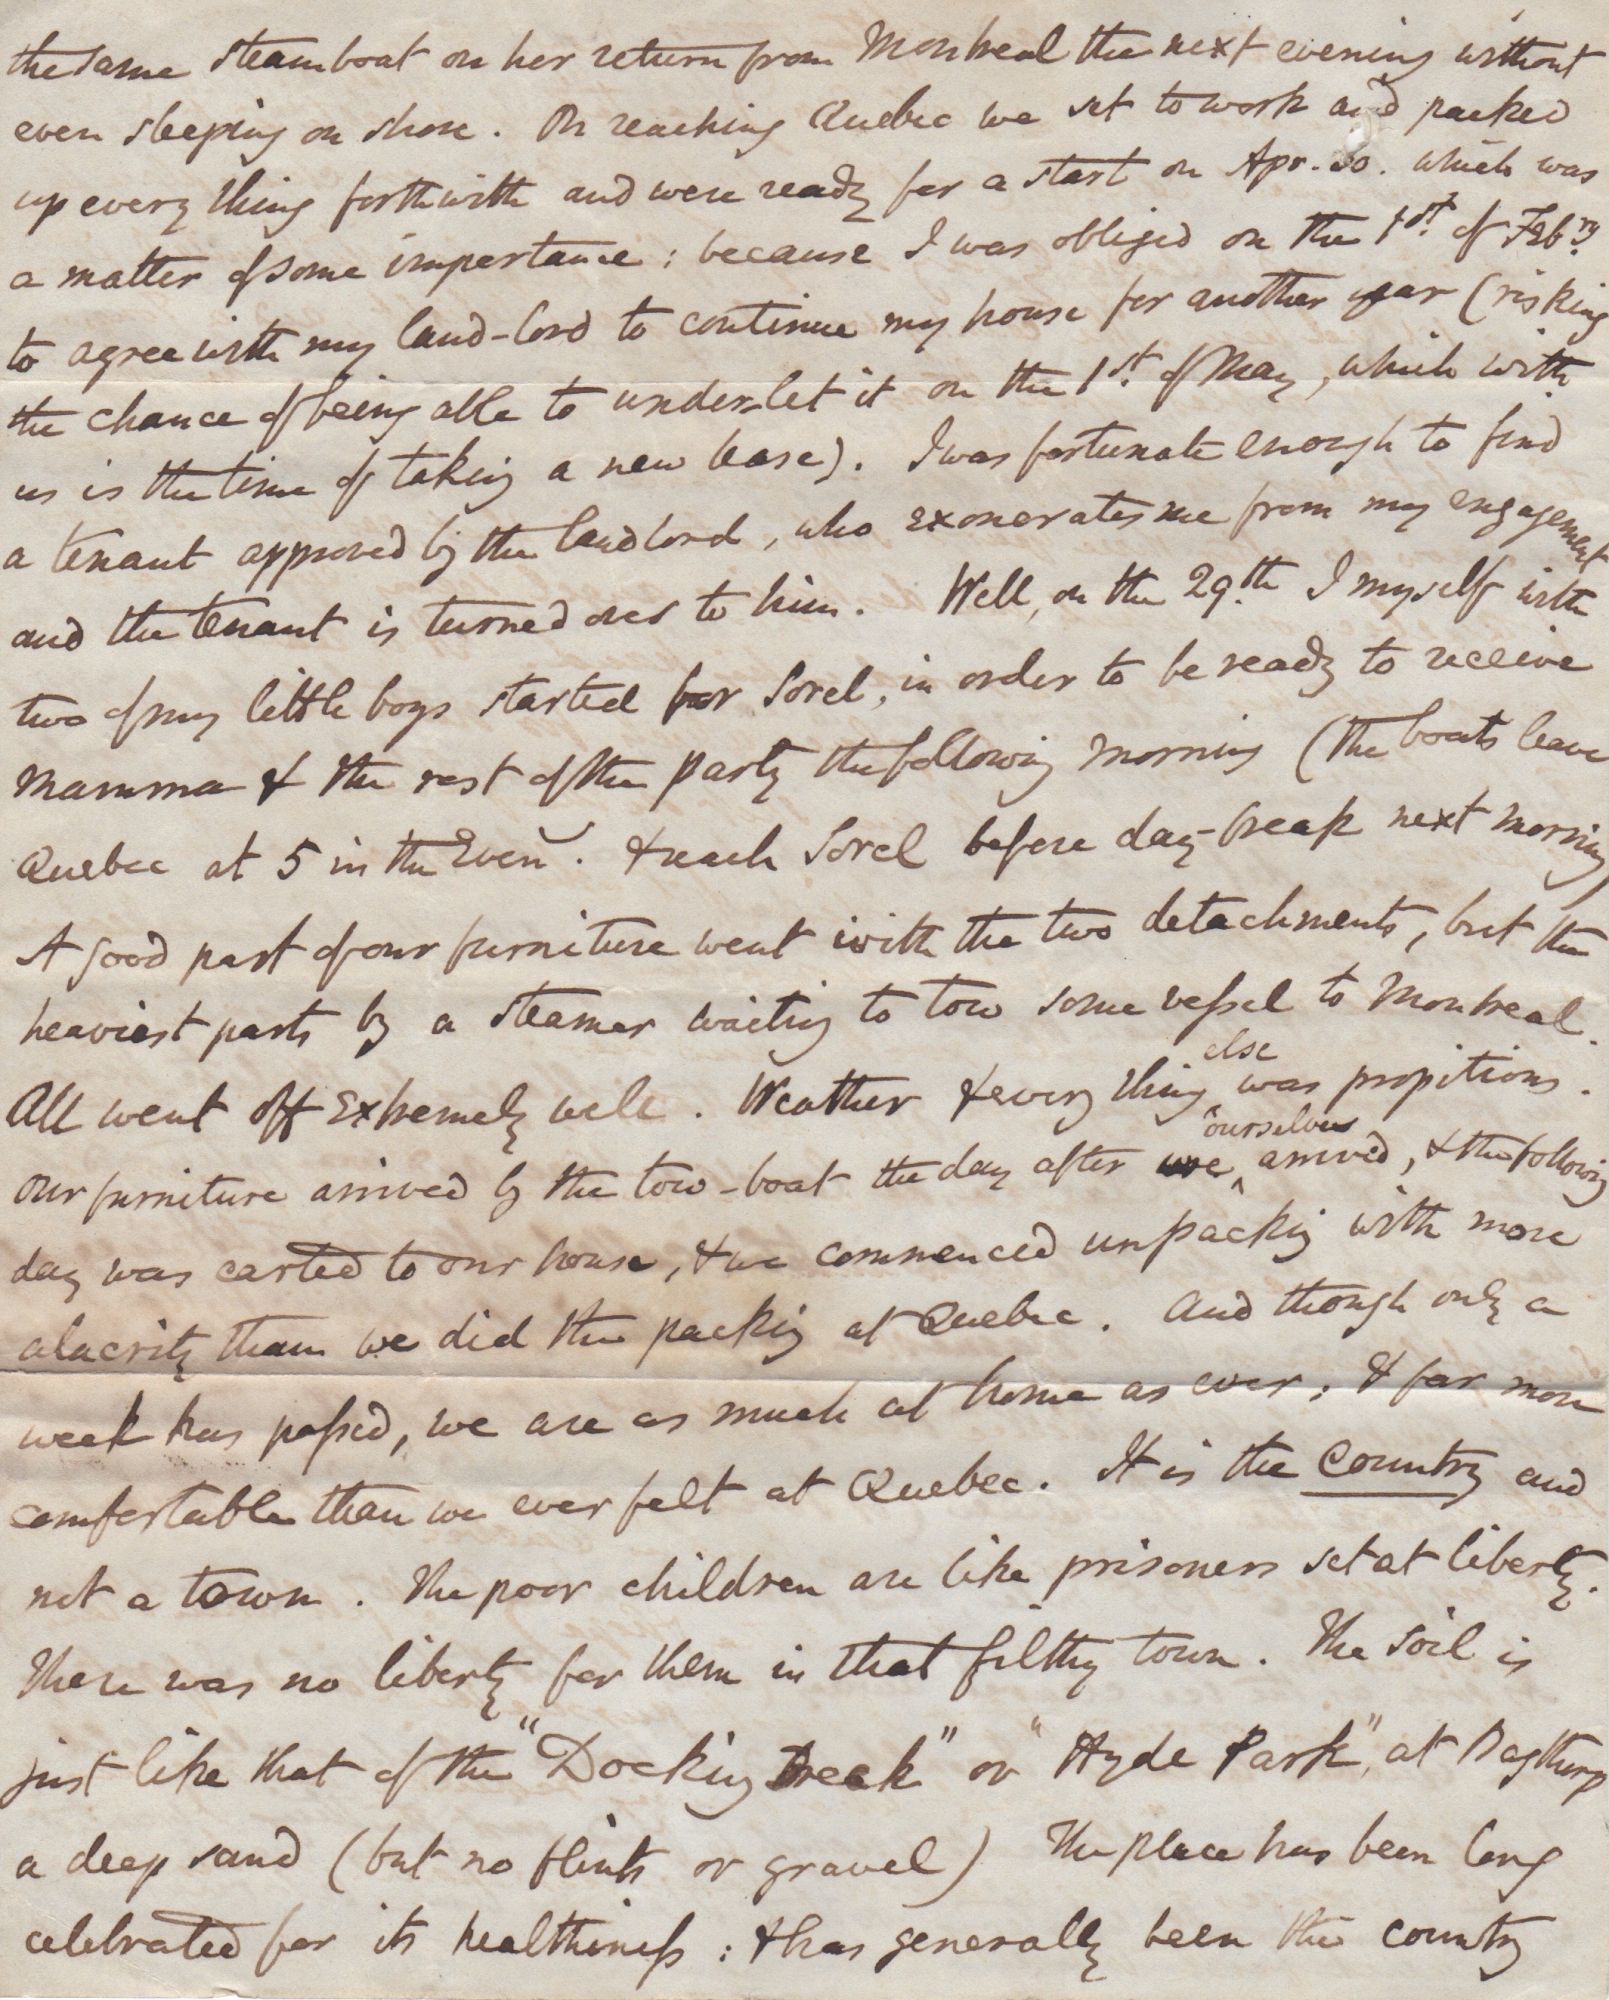 the same steamboat on her return from Montreal the next evening without
even sleeping on shore. On reaching Quebec we set to work and packed
up every thing forthwith and were ready for a start on Apr. 30. which was
a matter of some importance; because I was obliged on the 1st. of Feb.ry
to agree with my land-lord to continue my house for another year (risking
the chance of being able to under-let it on the 1st. of May, which with
us is the time of taking a new lease). I was fortunate enough to find
a tenant approved by the landlord, who exonerates me from my engagement
and the tenant is turned over to him. Well, on the 29th. I myself with
two of my little boys started for Sorel, in order to be ready to receive
Mamma & the rest of the party the following morning (the boats leave
Quebec at 5 in the Even. & reach Sorel before day-break next morning)
A good part of our furniture went with the two detachments, but the
heaviest parts by a steamer waiting to tow some vessel to Montreal.
All went off extremely well. Weather & every thing else was propitious.
Our furniture arrived by the tow-boat the day after we ourselves arrived, & the following
day was carted to our house, & we commenced unpacking with more
alacrity than we did the packing at Quebec. And though only a
week has passed, we are as much at home as ever; & far more
comfortable than we ever felt at Quebec. It is the country and
not a town. The poor children are like prisoners set at liberty.
There was no liberty for them in that filthy town. The soil is
just like that of the "Docking Breck" or "Hyde Park", at
a deep sand (but no flints or gravel) The place has been long
celebrated for its healthiness: & has generally been the country